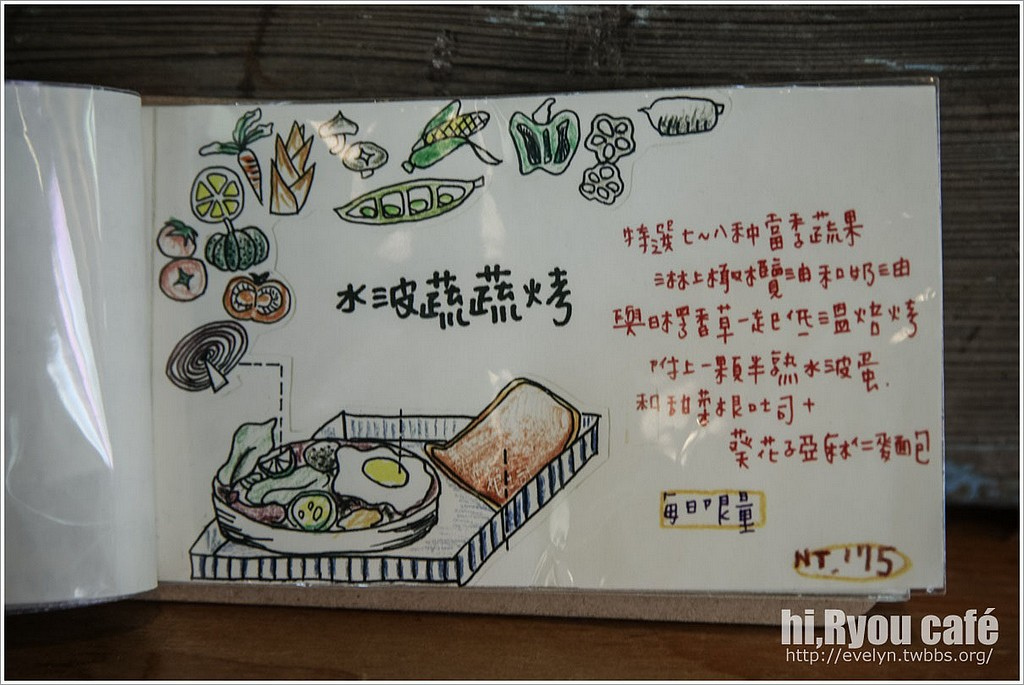 水波蔬蔬烤
特選七~八种當季蔬果
淋上橄欖油和奶油
與月桂香草一起低溫焙烤
附上一顆半熟水波蛋.
和甜菜根吐司+
葵花子亞麻仁麵包
每日限量
NT.175
hi,Ryou café
http://evelyn.twbbs.org/